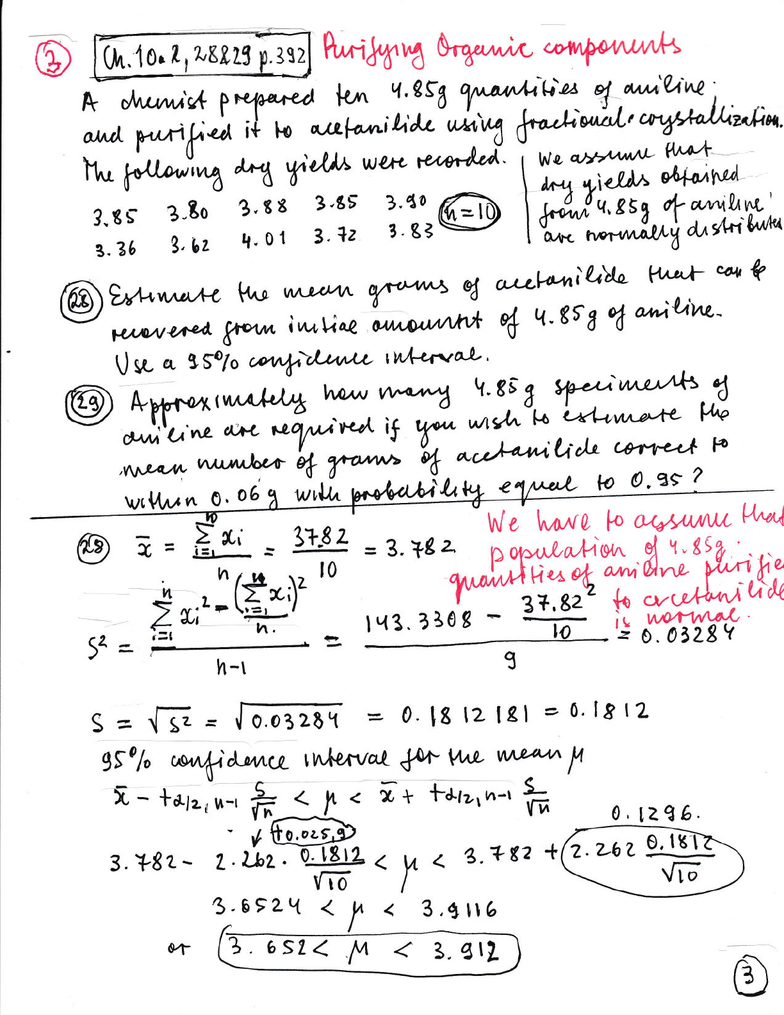 ③ Ch. 10.2, 28&29 p.392 Purifying Organic components
A chemist prepared ten 4.85g quantities of aniline
and purified it to acetanilide using fractional crystallization.
The following dry yields were recorded.
3.85 3.80 3.88 3.85 3.90
3.36 3.62 4.01 3.72 3.83
n=10
We assume that
dry yields obtained
from 4.85g of aniline
are normally distribute
㉘ Estimate the mean grams of acetanilide that can be
recovered from initial amountnt of 4.85g of aniline.
Use a 95% confidence interval.
㉙ Approximately how many 4.85g speciments of
aniline are required if you wish to estimate the
mean number of grams of acetanilide correct to
within 0.06g with probability equal to 0.95?
㉘ x̄ = Σ_{i=1}^{10} xi / n = 37.82 / 10 = 3.782
We have to assume that
population of 4.85g
quantities of aniline purifie
to acetanilide
is normal.
S² = (Σ_{i=1}^{n} xi² - (Σ_{i=1}^{10} xi)² / n.) / (n-1) = (143.3308 - 37.82² / 10) / 9 = 0.03284
S = √S² = √0.03284 = 0.1812181 = 0.1812
95% confidence interval for the mean μ
x̄ - tα/2, n-1 S/√n < μ < x̄ + tα/2, n-1 S/√n
t0.025,9
0.1296.
3.782 - 2.262 · 0.1812/√10 < μ < 3.782 + 2.262 0.1812/√10
3.6524 < μ < 3.9116
or 3.652 < μ < 3.912
③